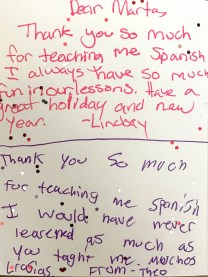 Dear Marta,
Thank you so much
for teaching me Spanish
I always have so much
fun in our lessons. Have a
great holiday and new
year. -Lindsey
Thank you so much
for teaching me Spanish
I would have never
learned as much as
you taght me. muschos
Gracias. FROM-Theo